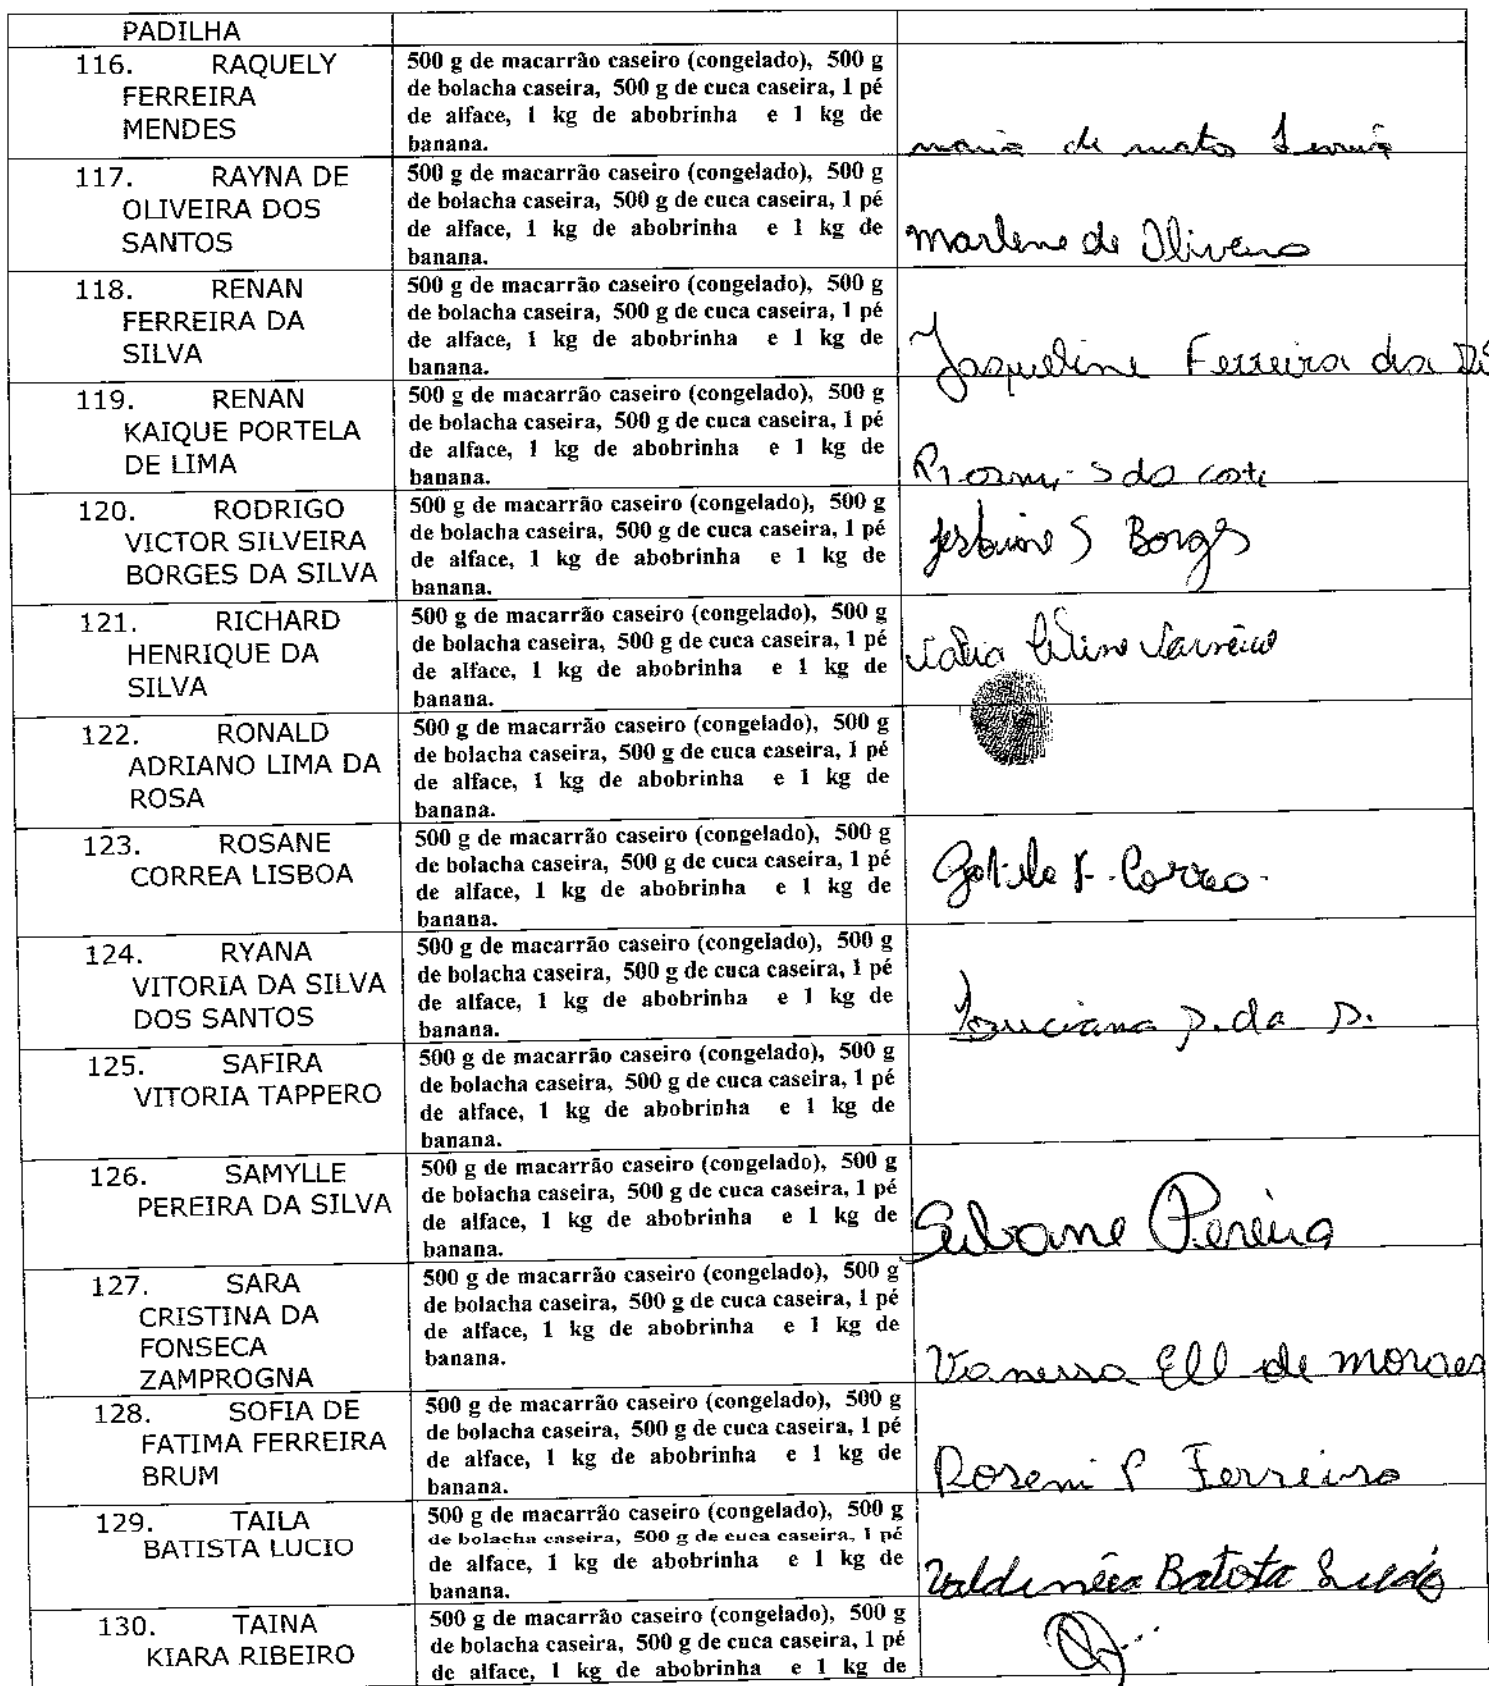 PADILHA
116. RAQUELY FERREIRA MENDES
500 g de macarrão caseiro (congelado), 500 g
de bolacha caseira, 500 g de cuca caseira, 1 pé
de alface, 1 kg de abobrinha e 1 kg de
banana.
maria de mato
117. RAYNA DE OLIVEIRA DOS SANTOS
500 g de macarrão caseiro (congelado), 500 g
de bolacha caseira, 500 g de cuca caseira, 1 pé
de alface, 1 kg de abobrinha e 1 kg de
banana.
Marlene de Oliveira
118. RENAN FERREIRA DA SILVA
500 g de macarrão caseiro (congelado), 500 g
de bolacha caseira, 500 g de cuca caseira, 1 pé
de alface, 1 kg de abobrinha e 1 kg de
banana.
Jaqueline Ferreira da
119. RENAN KAIQUE PORTELA DE LIMA
500 g de macarrão caseiro (congelado), 500 g
de bolacha caseira, 500 g de cuca caseira, 1 pé
de alface, 1 kg de abobrinha e 1 kg de
banana.
S da
120. RODRIGO VICTOR SILVEIRA BORGES DA SILVA
500 g de macarrão caseiro (congelado), 500 g
de bolacha caseira, 500 g de cuca caseira, 1 pé
de alface, 1 kg de abobrinha e 1 kg de
banana.
S Borges
121. RICHARD HENRIQUE DA SILVA
500 g de macarrão caseiro (congelado), 500 g
de bolacha caseira, 500 g de cuca caseira, 1 pé
de alface, 1 kg de abobrinha e 1 kg de
banana.
122. RONALD ADRIANO LIMA DA ROSA
500 g de macarrão caseiro (congelado), 500 g
de bolacha caseira, 500 g de cuca caseira, 1 pé
de alface, 1 kg de abobrinha e 1 kg de
banana.
123. ROSANE CORREA LISBOA
500 g de macarrão caseiro (congelado), 500 g
de bolacha caseira, 500 g de cuca caseira, 1 pé
de alface, 1 kg de abobrinha e 1 kg de
banana.
F. Correa.
124. RYANA VITORIA DA SILVA DOS SANTOS
500 g de macarrão caseiro (congelado), 500 g
de bolacha caseira, 500 g de cuca caseira, 1 pé
de alface, 1 kg de abobrinha e 1 kg de
banana.
Luciana P. da S.
125. SAFIRA VITORIA TAPPERO
500 g de macarrão caseiro (congelado), 500 g
de bolacha caseira, 500 g de cuca caseira, 1 pé
de alface, 1 kg de abobrinha e 1 kg de
banana.
126. SAMYLLE PEREIRA DA SILVA
500 g de macarrão caseiro (congelado), 500 g
de bolacha caseira, 500 g de cuca caseira, 1 pé
de alface, 1 kg de abobrinha e 1 kg de
banana.
Pereira
127. SARA CRISTINA DA FONSECA ZAMPROGNA
500 g de macarrão caseiro (congelado), 500 g
de bolacha caseira, 500 g de cuca caseira, 1 pé
de alface, 1 kg de abobrinha e 1 kg de
banana.
Vanessa Ell de moraes
128. SOFIA DE FATIMA FERREIRA BRUM
500 g de macarrão caseiro (congelado), 500 g
de bolacha caseira, 500 g de cuca caseira, 1 pé
de alface, 1 kg de abobrinha e 1 kg de
banana.
Roseni P Ferreira
129. TAILA BATISTA LUCIO
500 g de macarrão caseiro (congelado), 500 g
de bolacha caseira, 500 g de cuca caseira, 1 pé
de alface, 1 kg de abobrinha e 1 kg de
banana.
Valdinéia Batista Lucio
130. TAINA KIARA RIBEIRO
500 g de macarrão caseiro (congelado), 500 g
de bolacha caseira, 500 g de cuca caseira, 1 pé
de alface, 1 kg de abobrinha e 1 kg de